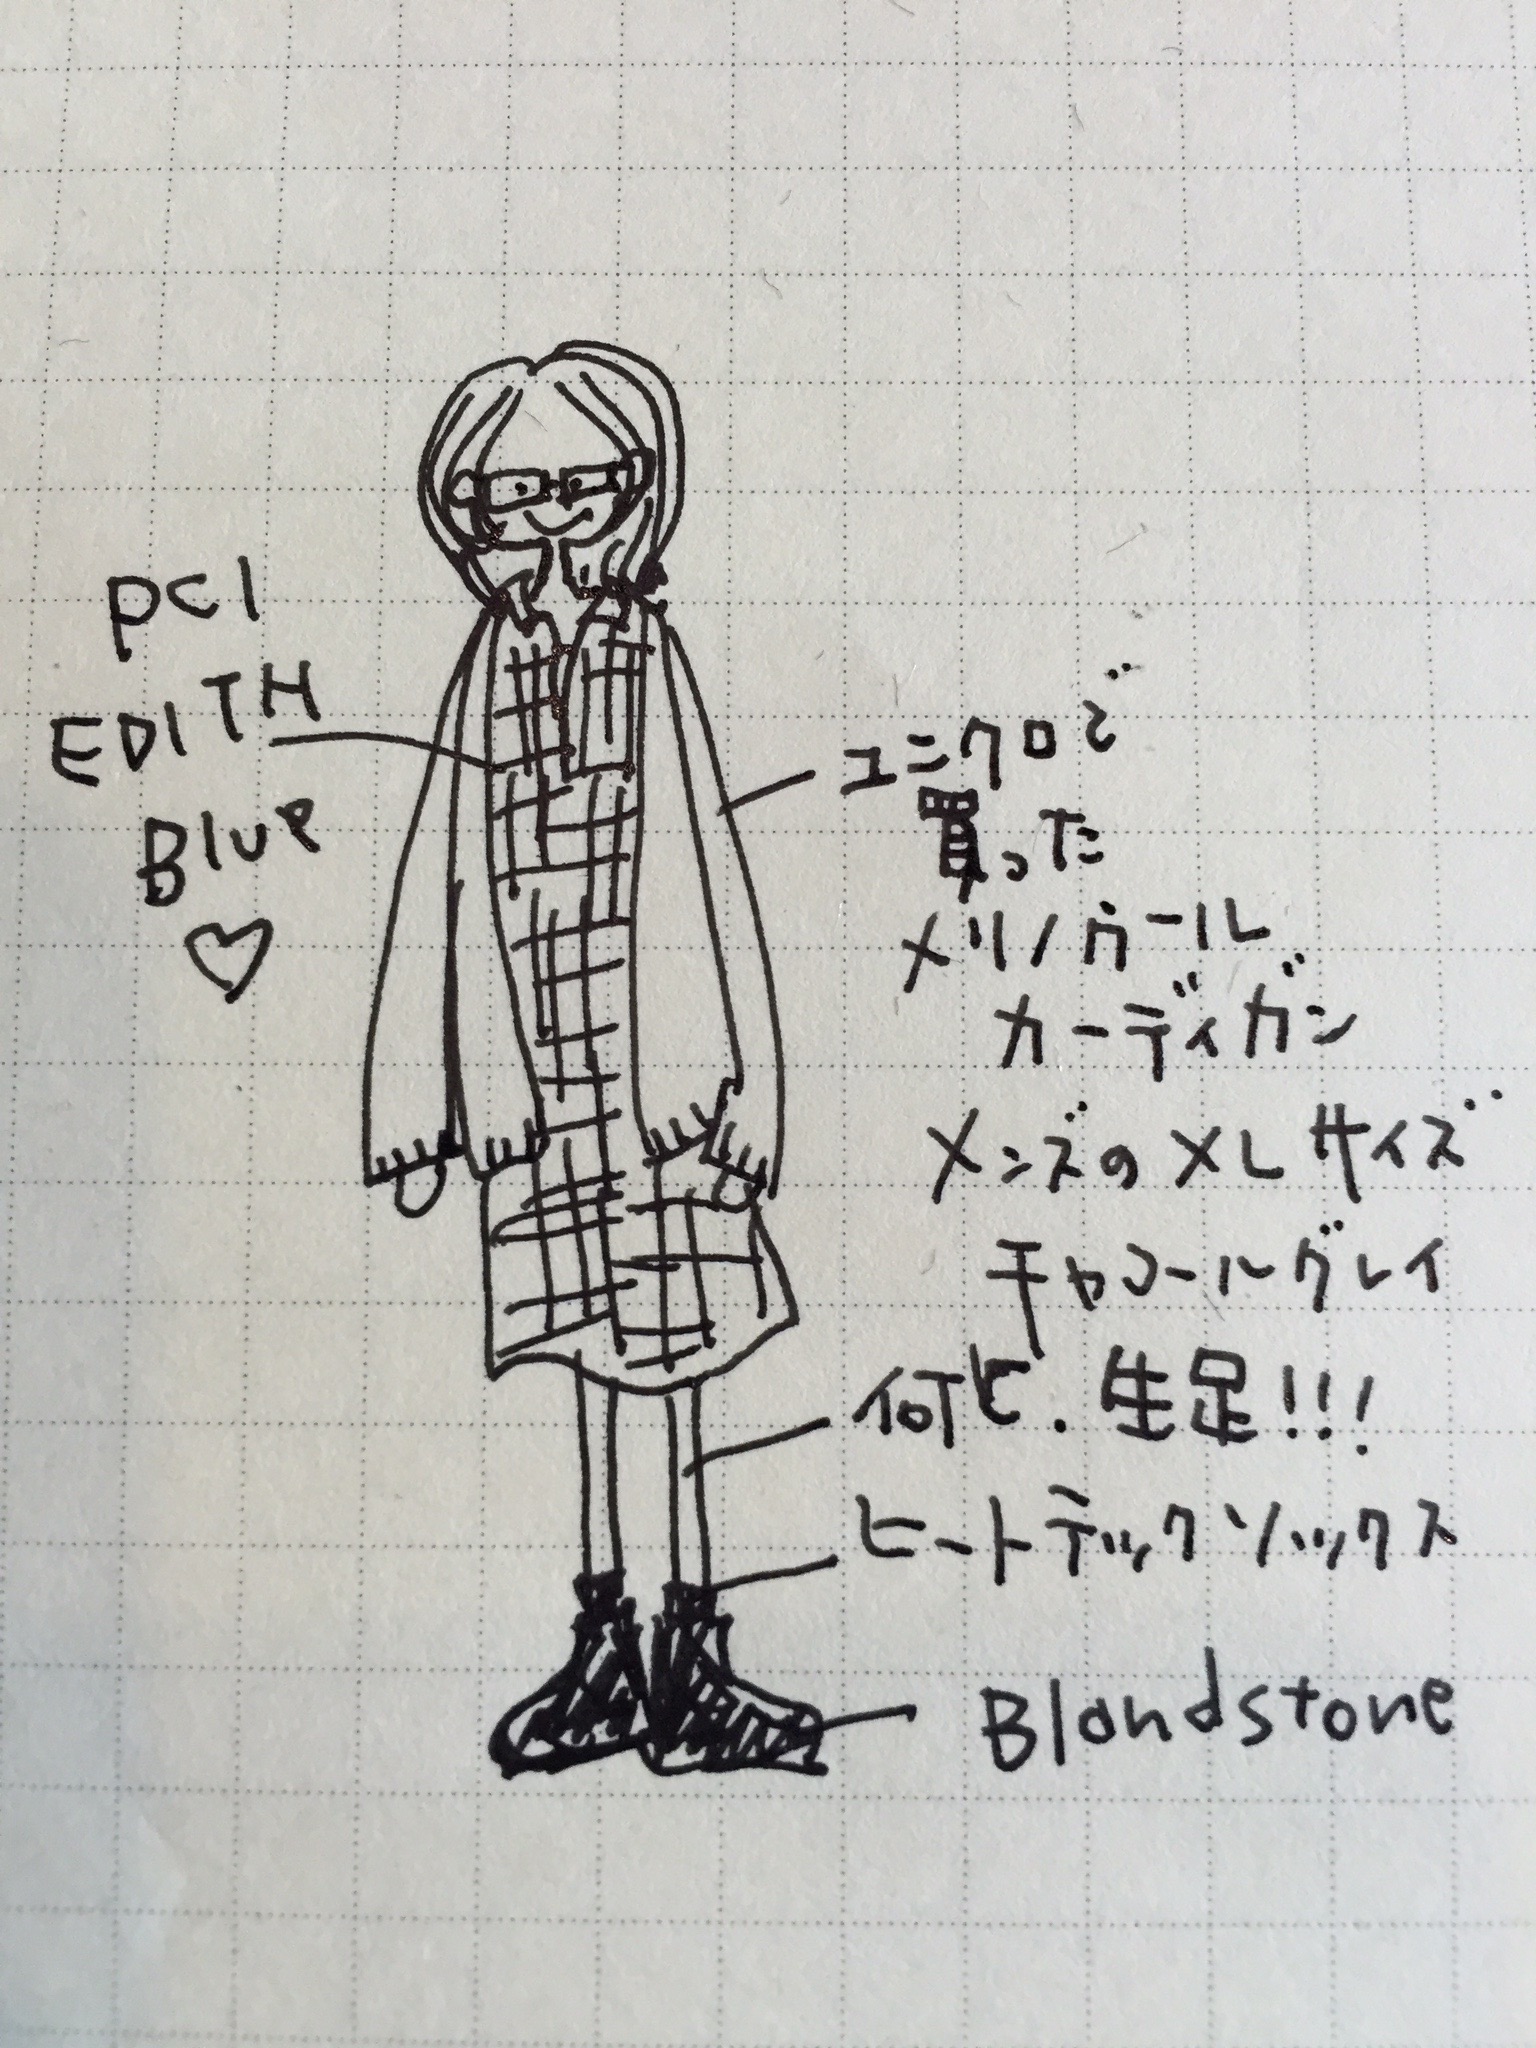 PCI
EDITH
Blue
ユニクロで
買った
メリノウール
カーディガン
メンズのXLサイズ
チャコールグレイ
何と、生足!!!
ヒートテックソックス
Blandstone